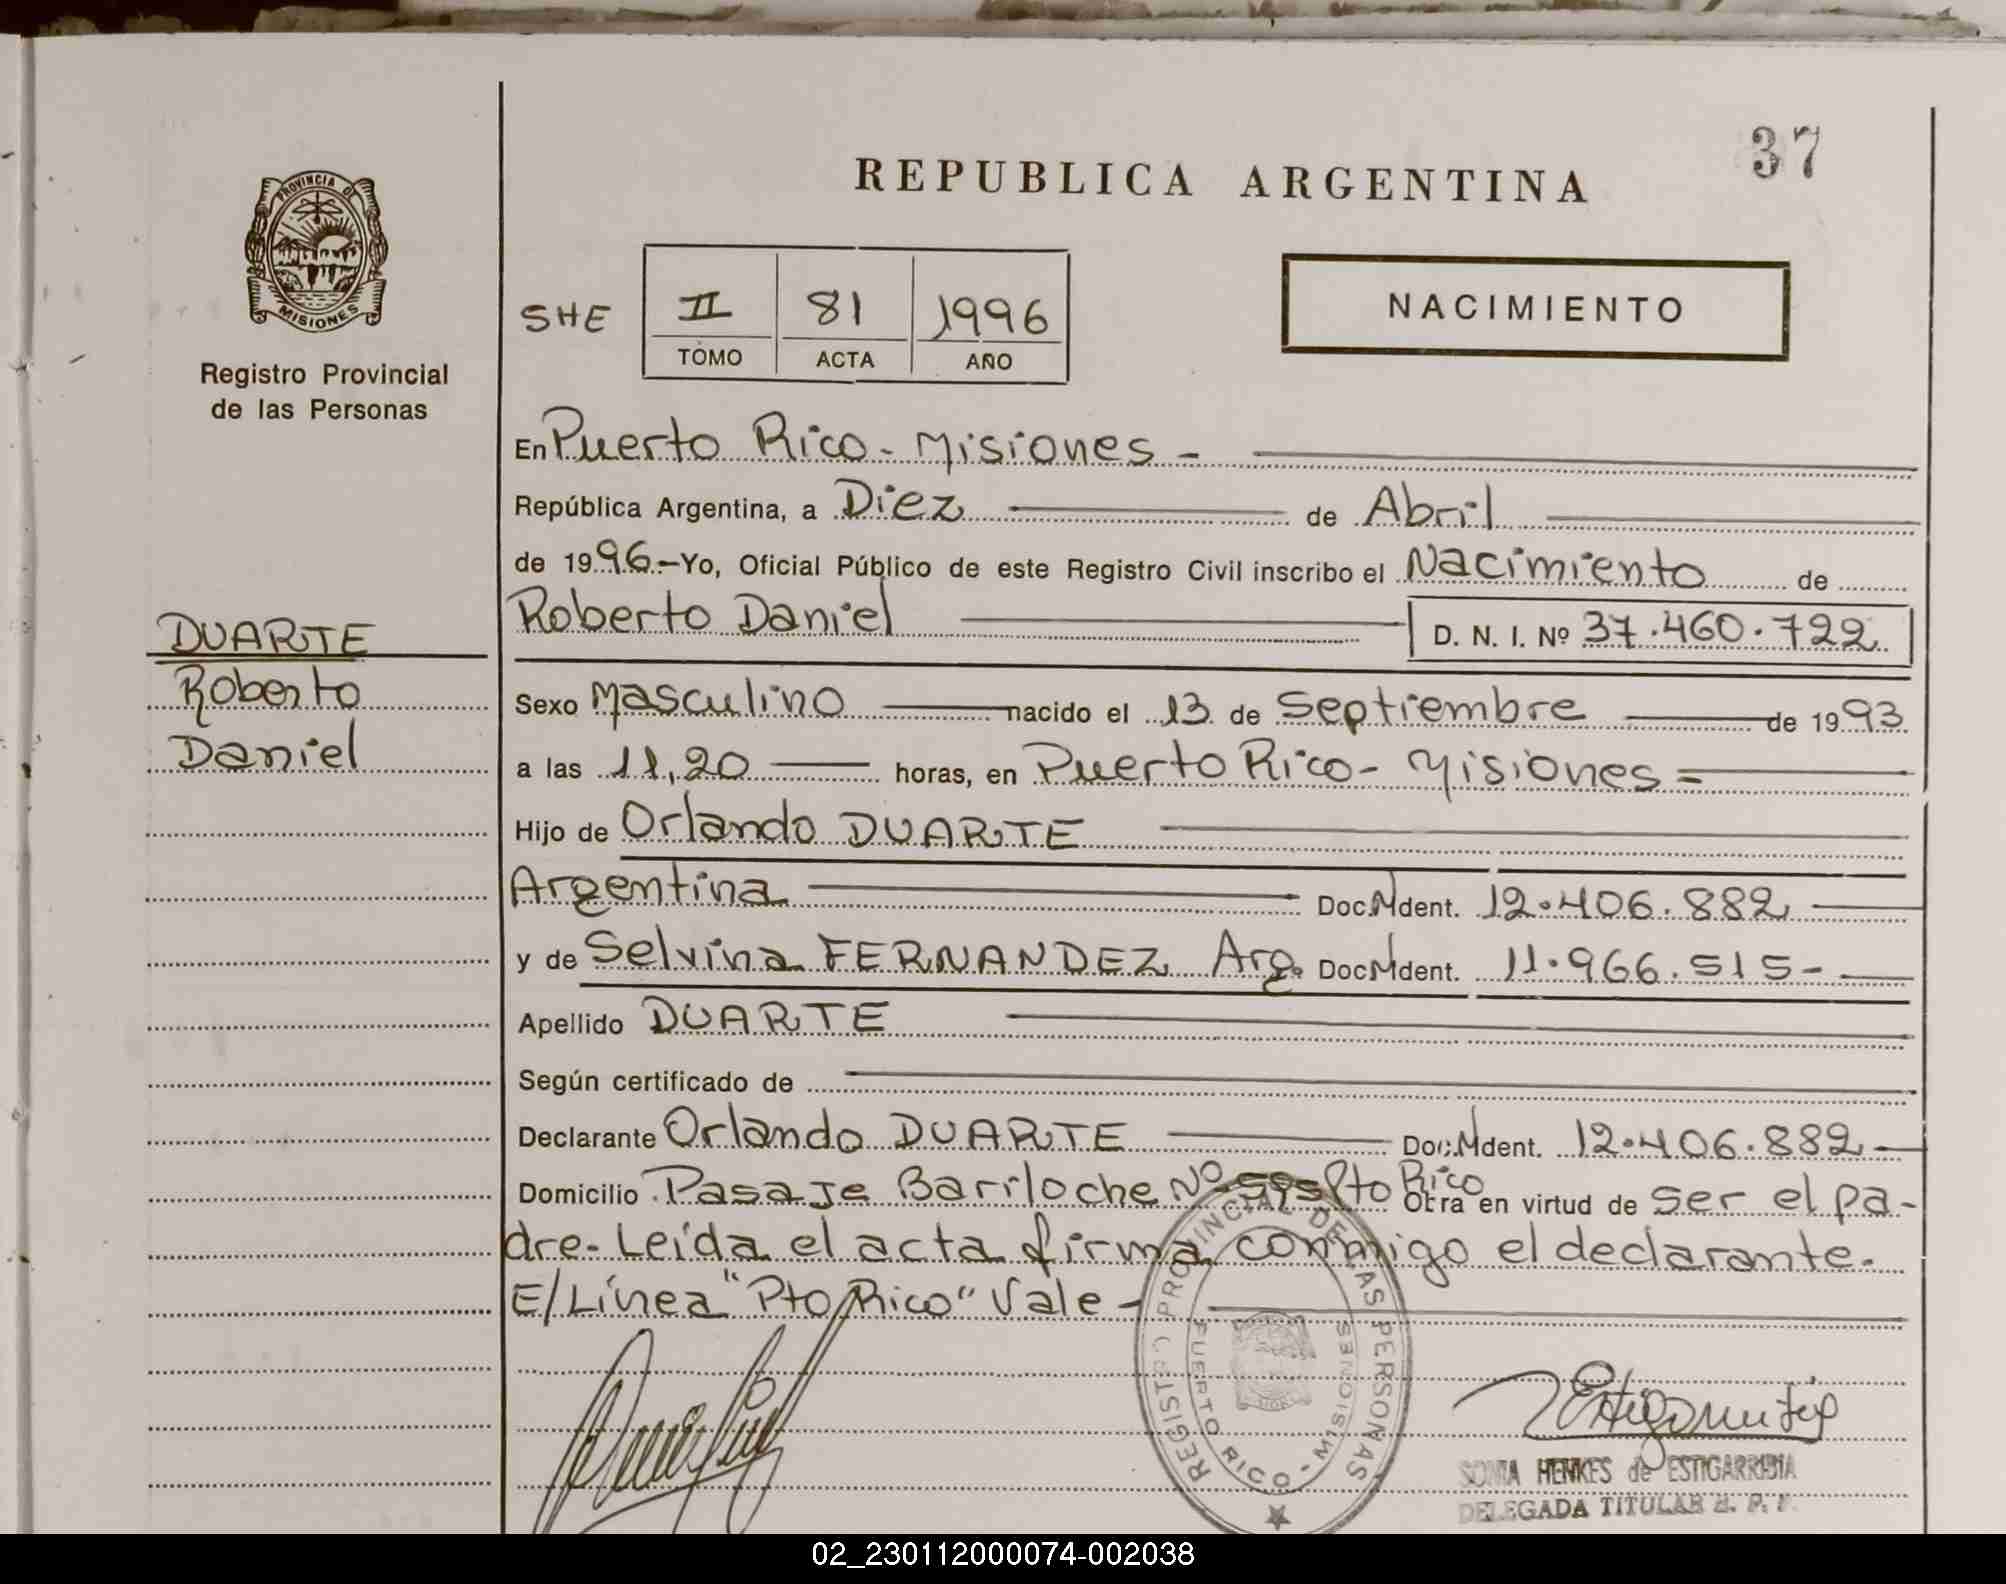 37
REPUBLICA ARGENTINA
PROVINCIA DE
MISIONES
Registro Provincial
de las Personas
SHE
II 81 1996
TOMO ACTA AÑO
NACIMIENTO
En Puerto Rico - Misiones -
República Argentina, a Diez de Abril
de 1996.- Yo, Oficial Público de este Registro Civil inscribo el Nacimiento de
Roberto Daniel D. N. I. Nº 37.460.722
DUARTE
Roberto
Daniel
Sexo Masculino nacido el 13 de Septiembre de 1993
a las 11,20 horas, en Puerto Rico - Misiones =
Hijo de Orlando DUARTE
Argentina Doc. Ident. 12.406.882
y de Selvina FERNANDEZ Arg. Doc. Ident. 11.966.515-
Apellido DUARTE
Según certificado de
Declarante Orlando DUARTE Doc. Ident. 12.406.882
Domicilio Pasaje Bariloche Nº Pto Rico Obra en virtud de ser el pa-
dre. Leída el acta firma conmigo el declarante.
E/Línea "Pto Rico" Vale -
REGISTRO PROVINCIAL DE LAS PERSONAS
PUERTO RICO - MISIONES
SONIA HENKES de ESTIGARRIBIA
DELEGADA TITULAR R. P. P.
02_230112000074-002038